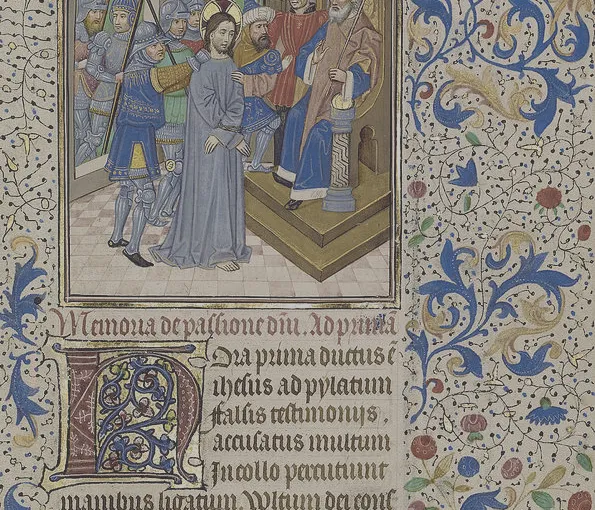 Memoria de passione dni. Ad primā
Hora prima ductus ē
ihesus ad pylatum
falsis testimonijs.
accusatus multum
In collo percutiunt
manibus ligatum. Vltum dei conf